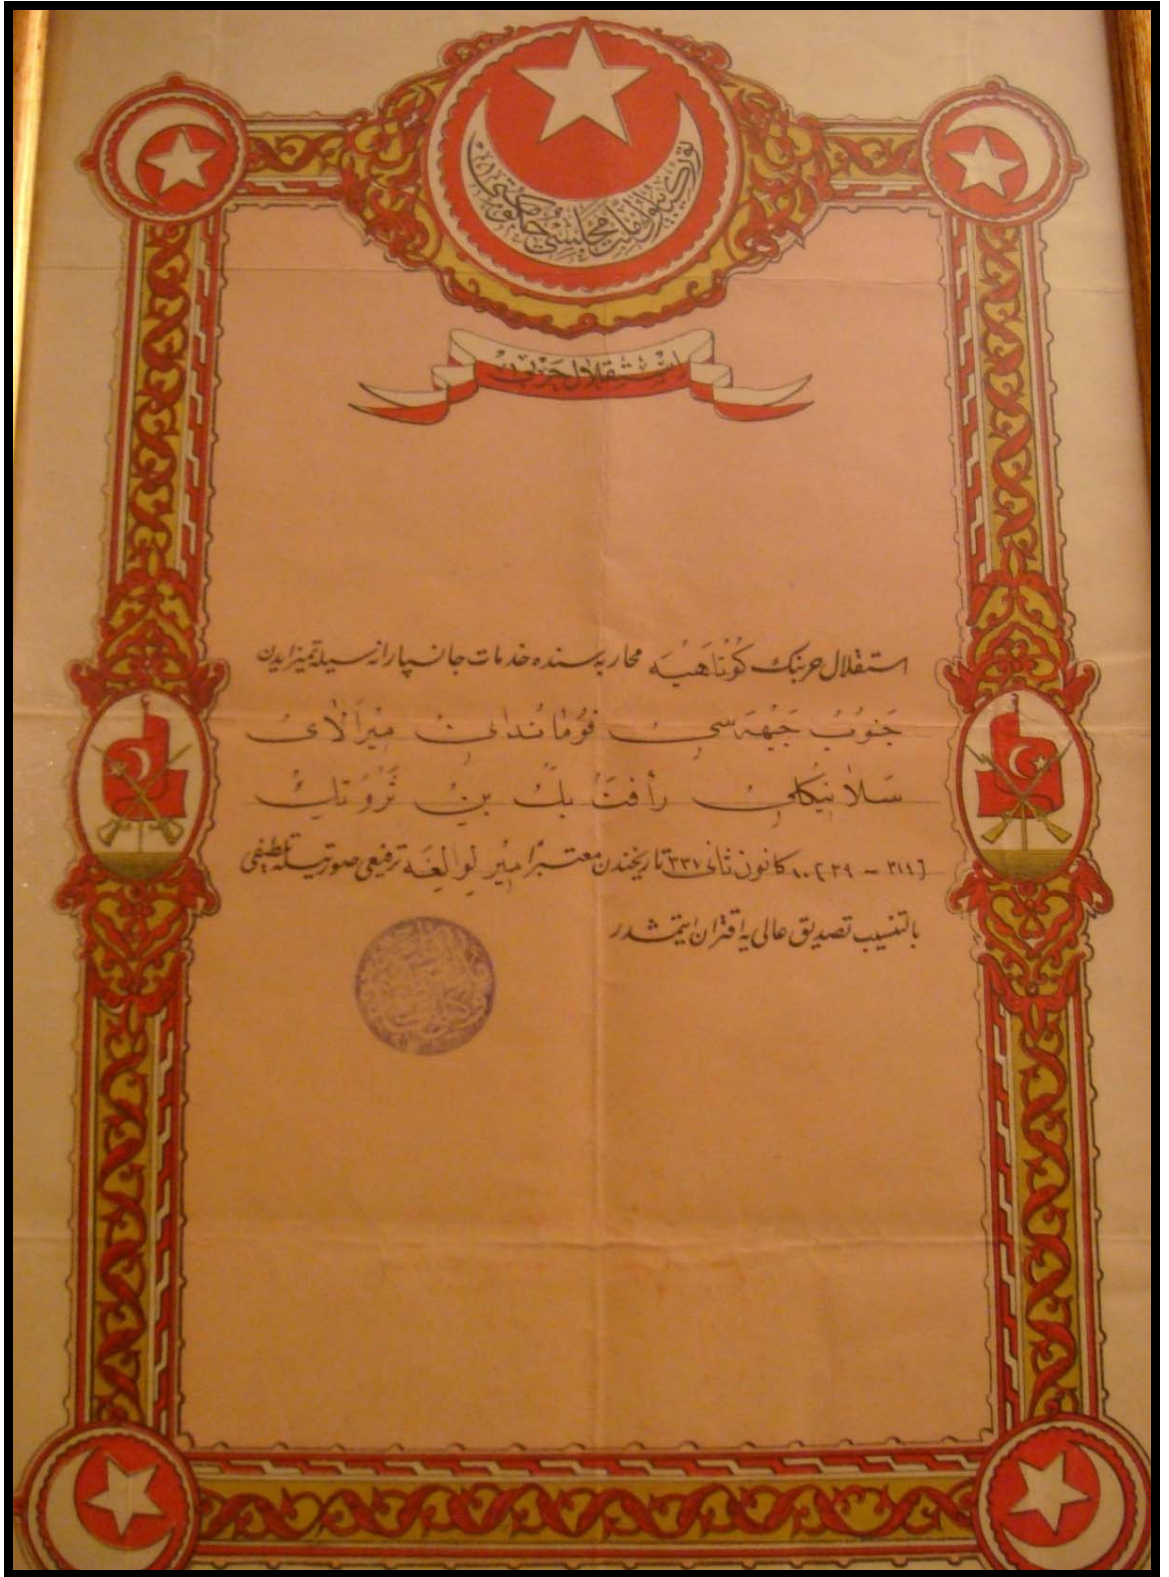 تورکیا بیوک ملت مجلسی حکومتی
استقلال حربی
استقلال حربنك كُوتَاهْيَه محاربه سنده خدمات جانسپارانه سیله تمیز ایدن
جَنُوبْ جَبْهَه سِیْ قُومَانْدَانِیْ مِیْرَآلَایْ
سَلَانِیكْلِیْ رأفتْ بكْ بِنْ ثَرْوَتْ بكْ
[٣١٤ - ٢٩] ١٠ كانون ثانی ٣٣٧ تاریخندن معتبرًا میر لوالغه ترفیعی صورتیله تلطیفی
بالتنسیب تصدیق عالی یه اقتران ایتمشدر